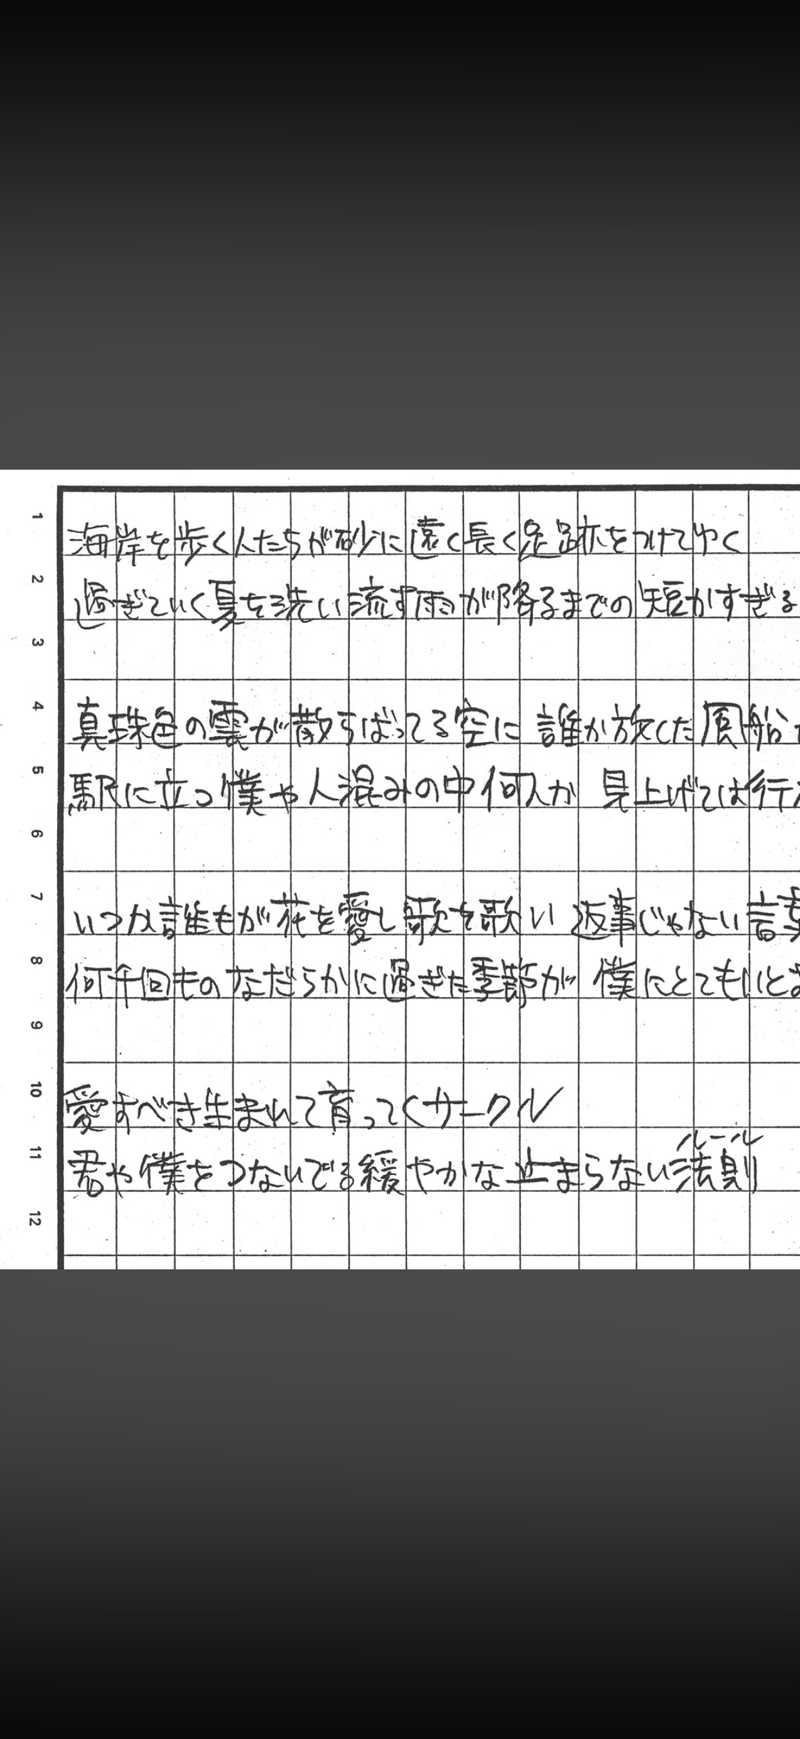 1
海岸を歩く人たちが砂に遠く長く足跡をつけてゆく
2
過ぎていく夏を洗い流す雨が降るまでの短かすぎる
3
4
真珠色の雲が散らばってる空に 誰か放した風船
5
駅に立つ僕や人混みの中何人か 見上げては行
6
7
いつか誰もが花を愛し歌を歌い 返事じゃない言葉
8
何千回ものなだらかに過ぎた季節が 僕にとてもいとお
9
10
愛すべき生まれて育ってくサークル
ルール
11
君や僕をつないでる緩やかな止まらない法則
12